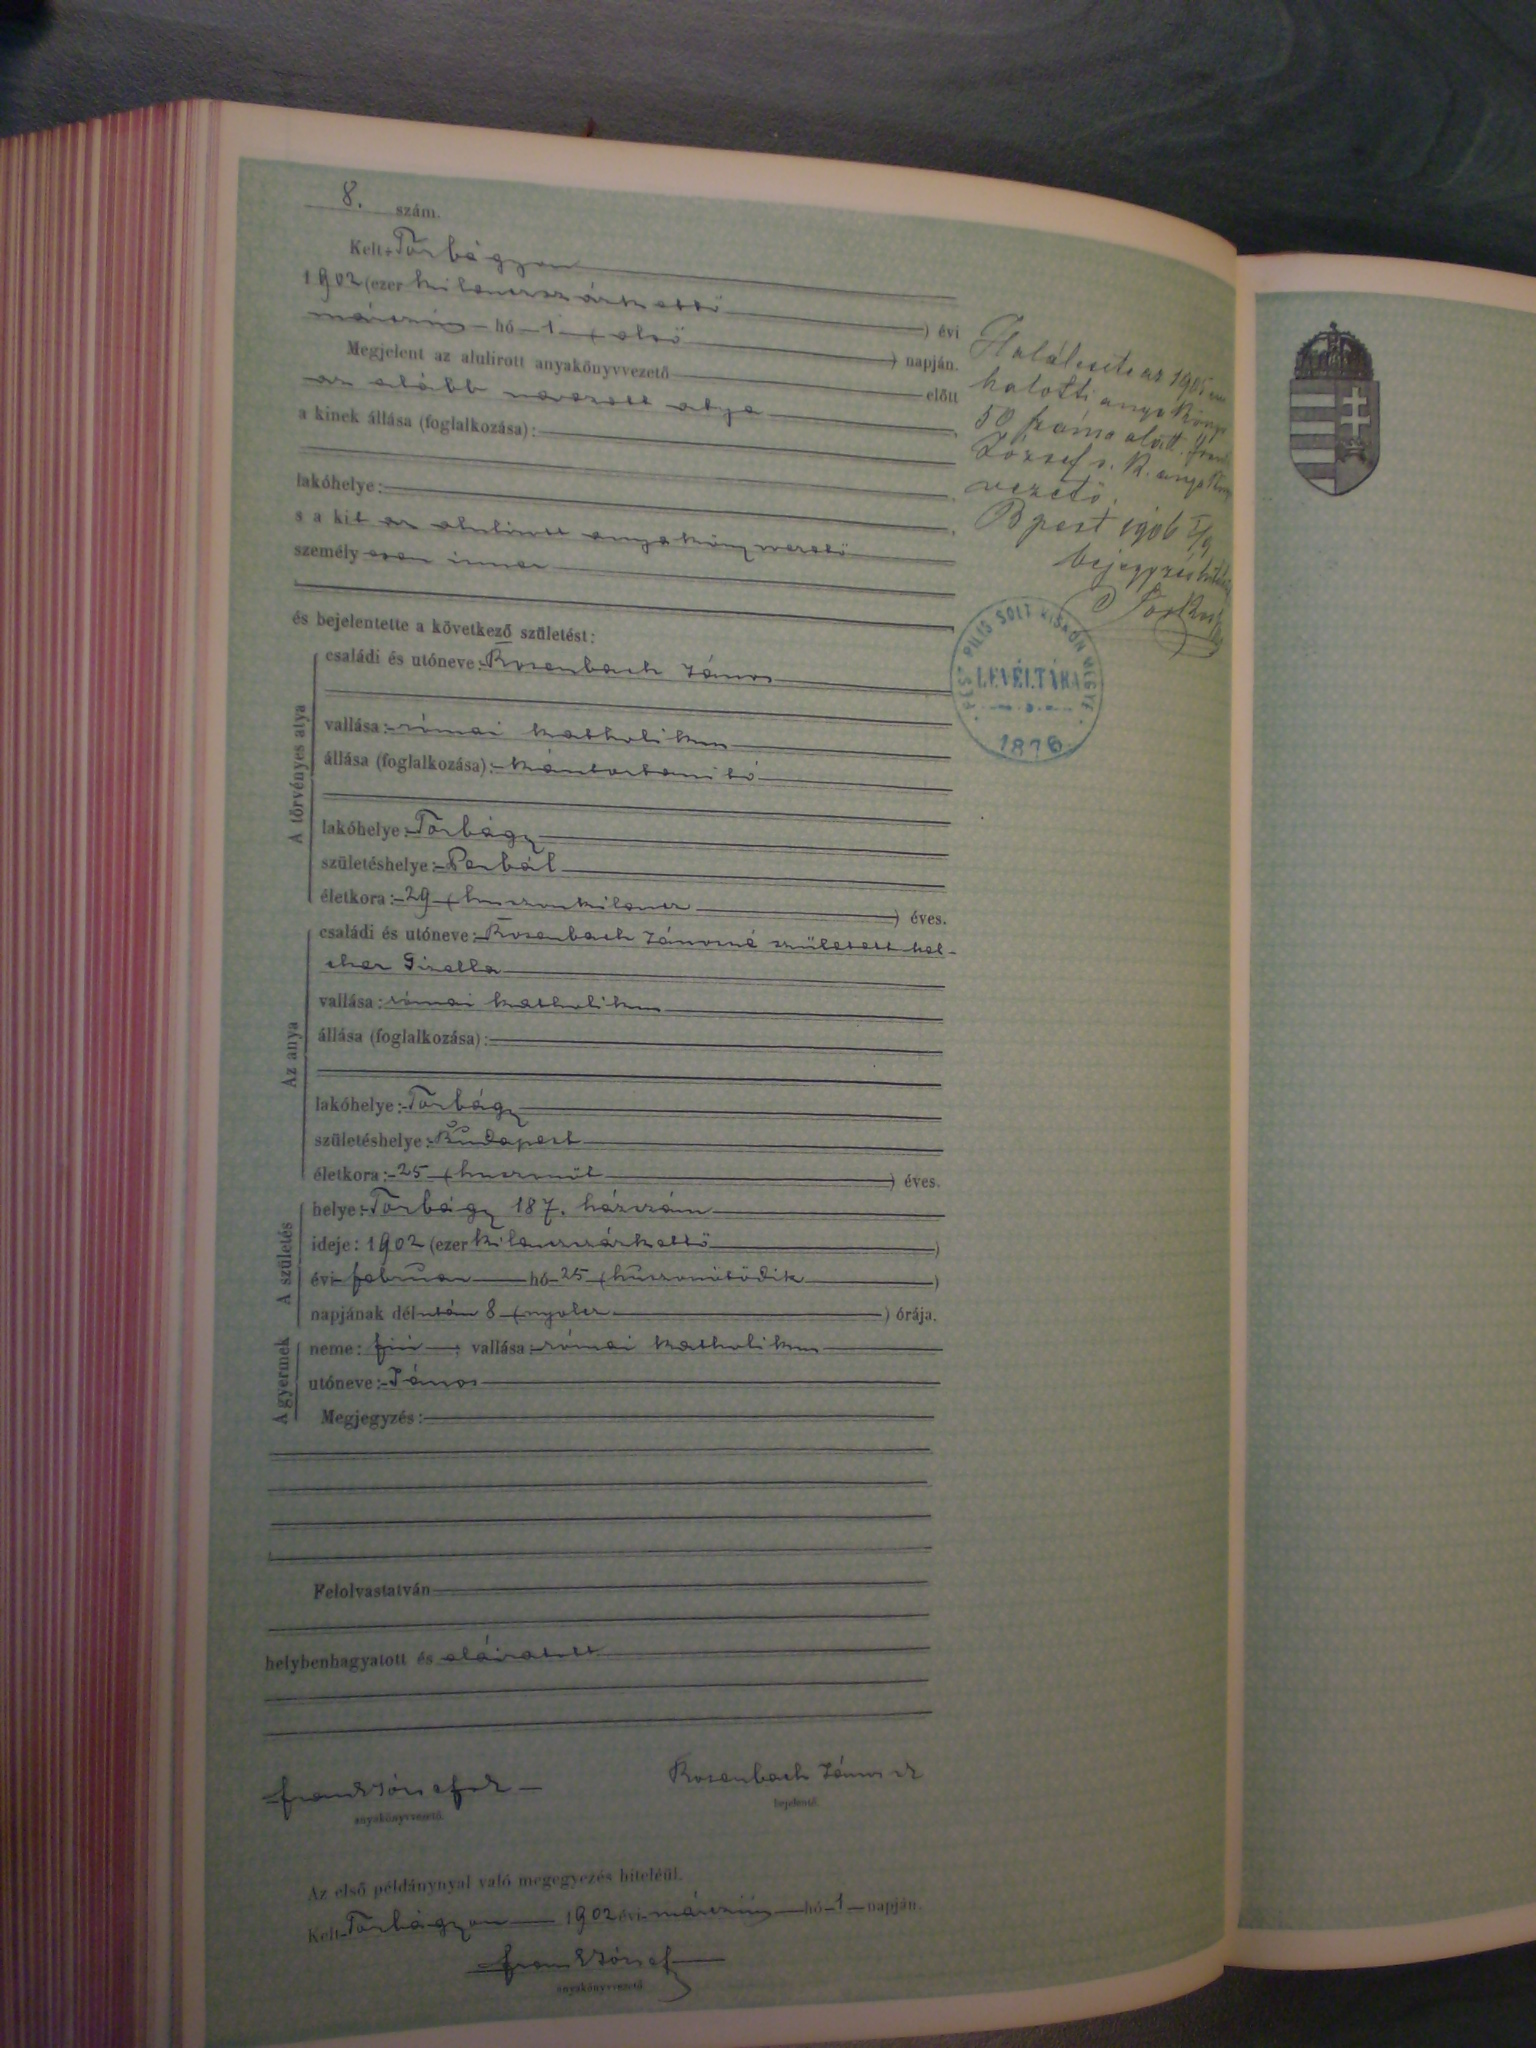 8. szám.
Kelt Torbágyon
1902 (ezer kilenczszázkettő ) évi
márczius hó 1 ( első ) napján.
Megjelent az alulirott anyakönyvvezető előtt
az alább nevezett atya
a kinek állása (foglalkozása):
lakóhelye:
s a kit az alulirott anyakönyvvezető
személyesen ismer
és bejelentette a következő születést:
A törvényes atya
családi és utóneve: Rosenbach János
vallása: római katholikus
állása (foglalkozása): kántortanitó
lakóhelye: Torbágy
születéshelye: Perbál
életkora: 29 (huszonkilencz ) éves.
Az anya
családi és utóneve: Rosenbach Jánosné született Hol-
cher Gizella
vallása: római katholikus
állása (foglalkozása):
lakóhelye: Torbágy
születéshelye: Budapest
életkora: 25 (huszonöt ) éves.
A születés
helye: Torbágy 187. házszám
ideje: 1902 (ezer kilenczszázkettő )
évi februar hó 25 (huszonötödik )
napjának délután 8 (nyolcz ) órája.
A gyermek
neme: fiú ; vallása: római katholikus
utóneve: János
Megjegyzés:
Felolvastatván
helybenhagyatott és aláiratott
Frank József
anyakönyvvezető.
Rosenbach János
bejelentő.
Az első példánynyal való megegyezés hiteléül.
Kelt Torbágyon 1902 évi márczius hó 1 napján.
Frank József
anyakönyvvezető
Halálesete az 1905
halotti anyakönyv
50 száma alatt.
József s. k. anyakönyv
vezető.
Bpest 1906 I/9
bejegyzés
PEST PILIS SOLT KISKUN MEGYE
LEVÉLTÁRA
1876